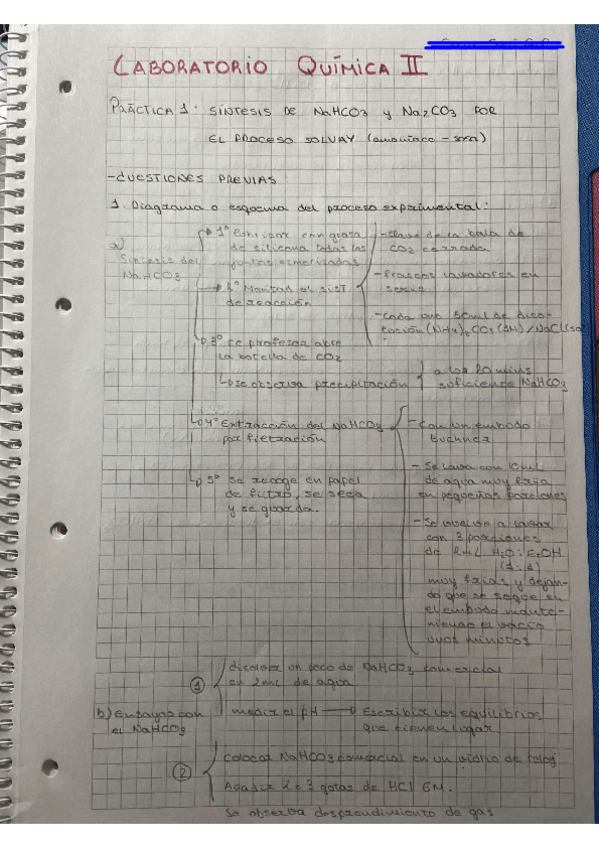 LABORATORIO QUÍMICA II
PRÁCTICA 1: SÍNTESIS DE NaHCO3 y Na2CO3 POR
EL PROCESO SOLVAY (amoniaco - sosa)
- CUESTIONES PREVIAS:
1. Diagrama o esquema del proceso experimental:
a) Síntesis del NaHCO3
1º Engrasar con grasa
de silicona todas las
juntas esmeriladas
2º Montad el SIST
de reacción
- llave de la bala de
CO2 cerrada
- frascos lavadores en
serie
- cada uno 50 ml de
(NH4)2CO3 / NaCl
3º se profesor abre
la botella de CO2
se observa precipitación
a los 20 mins
suficiente NaHCO3
4º Extracción del NaHCO3
por filtración
- Con un embudo
Buchner
- Se lava con 10 ml
de agua muy fría
en pequeñas porciones
- Se vuelve a lavar
con 3 porciones
de 2 mL H2O : EtOH
(1:1)
muy frías y dejan-
do que se seque en
el embudo mante-
niendo el vacío
unos minutos
5º Se recoge en papel
de filtro, se seca
y se guarda.
b) Ensayos con
el NaHCO3
1
disolver un poco de NaHCO3 comercial
en 2 mL de agua
medir el pH → Escribir los equilibrios
que tienen lugar
2
Colocar NaHCO3 comercial en un vidrio de reloj
Añadir 2 o 3 gotas de HCl 6M.
Se observa desprendimiento de gas